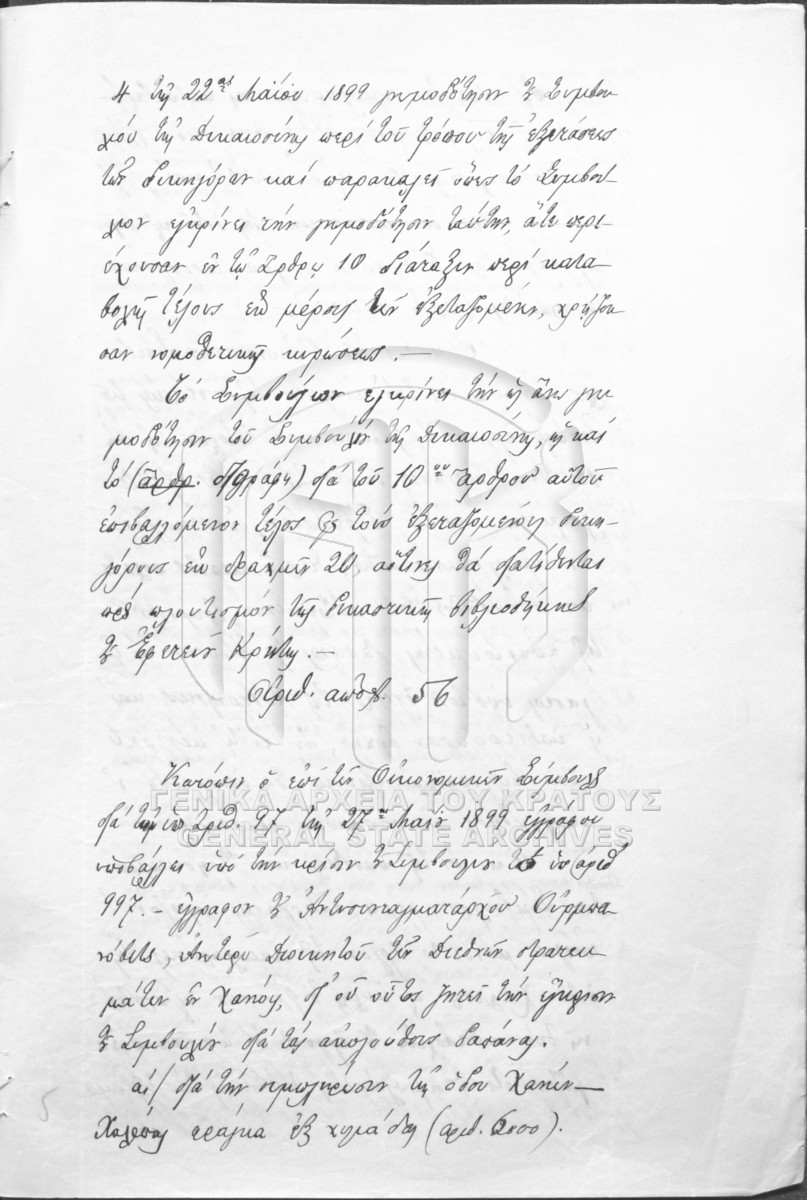 4 τῆς 22ας Μαΐου 1899 γνωμοδότησιν τοῦ Συμβου-
λίου τῆς Δικαιοσύνης περὶ τοῦ τρόπου τῆς ἐξετάσεως
τῶν δικηγόρων καὶ παρακαλεῖ ὅπως τὸ Συμβού-
λιον ἐγκρίνει τὴν γνωμοδότησιν ταύτην, ἅτε περι-
έχουσαν ἐν τῷ ἄρθρῳ 10 διάταξιν περὶ κατα-
βολῆς τέλους ἐκ μέρους τῶν ἐξεταζομένων, χρῄζου-
σαν νομοθετικῆς κυρώσεως. —
Τὸ Συμβούλιον ἐγκρίνει τὴν ὡς ἄνω γνω
μοδότησιν τοῦ Συμβουλίου τῆς Δικαιοσύνης, ὡς καὶ
τὸ διὰ τοῦ 10ου ἄρθρου αὐτοῦ
ἐπιβαλλόμενον τέλος εἰς τοὺς ἐξεταζομένους δικη-
γόρους ἐκ δραχμῶν 20, αἵτινες θὰ διατίθενται
πρὸς πλουτισμὸν τῆς δικαστικῆς βιβλιοθήκης
τοῦ Ἐφετείου Κρήτης. —
Ἀριθ. ἀποφ. 56
Κατόπιν ὁ ἐπὶ τῶν Οἰκονομικῶν Σύμβουλος
διὰ τοῦ ὑπ Ἀριθ. 97 τῆς 27ης Μαΐου 1899 ἐγγράφου
ὑποβάλλει ὑπὸ τὴν κρίσιν τοῦ Συμβουλίου τὸ ὑπ ἀριθ
997. — ἔγγραφον τοῦ Ἀντισυνταγματάρχου Οὐρμπα-
νόβιτς, Ἀνωτέρου Διοικητοῦ τῶν Διεθνῶν στρατευ
μάτων ἐν Χανίοις, δι' οὗ οὗτος ζητεῖ τὴν ἔγκρισιν
τοῦ Συμβουλίου διὰ τὰς ἀκολούθους δαπάνας.
αʹ/ διὰ τὴν τῆς ὁδοῦ Χανίων —
Χαλέπας φράγκα ἓξ χιλιάδας (ἀριθ. 6000).
ΓΕΝΙΚΑ ΑΡΧΕΙΑ ΤΟΥ ΚΡΑΤΟΥΣ
GENERAL STATE ARCHIVES